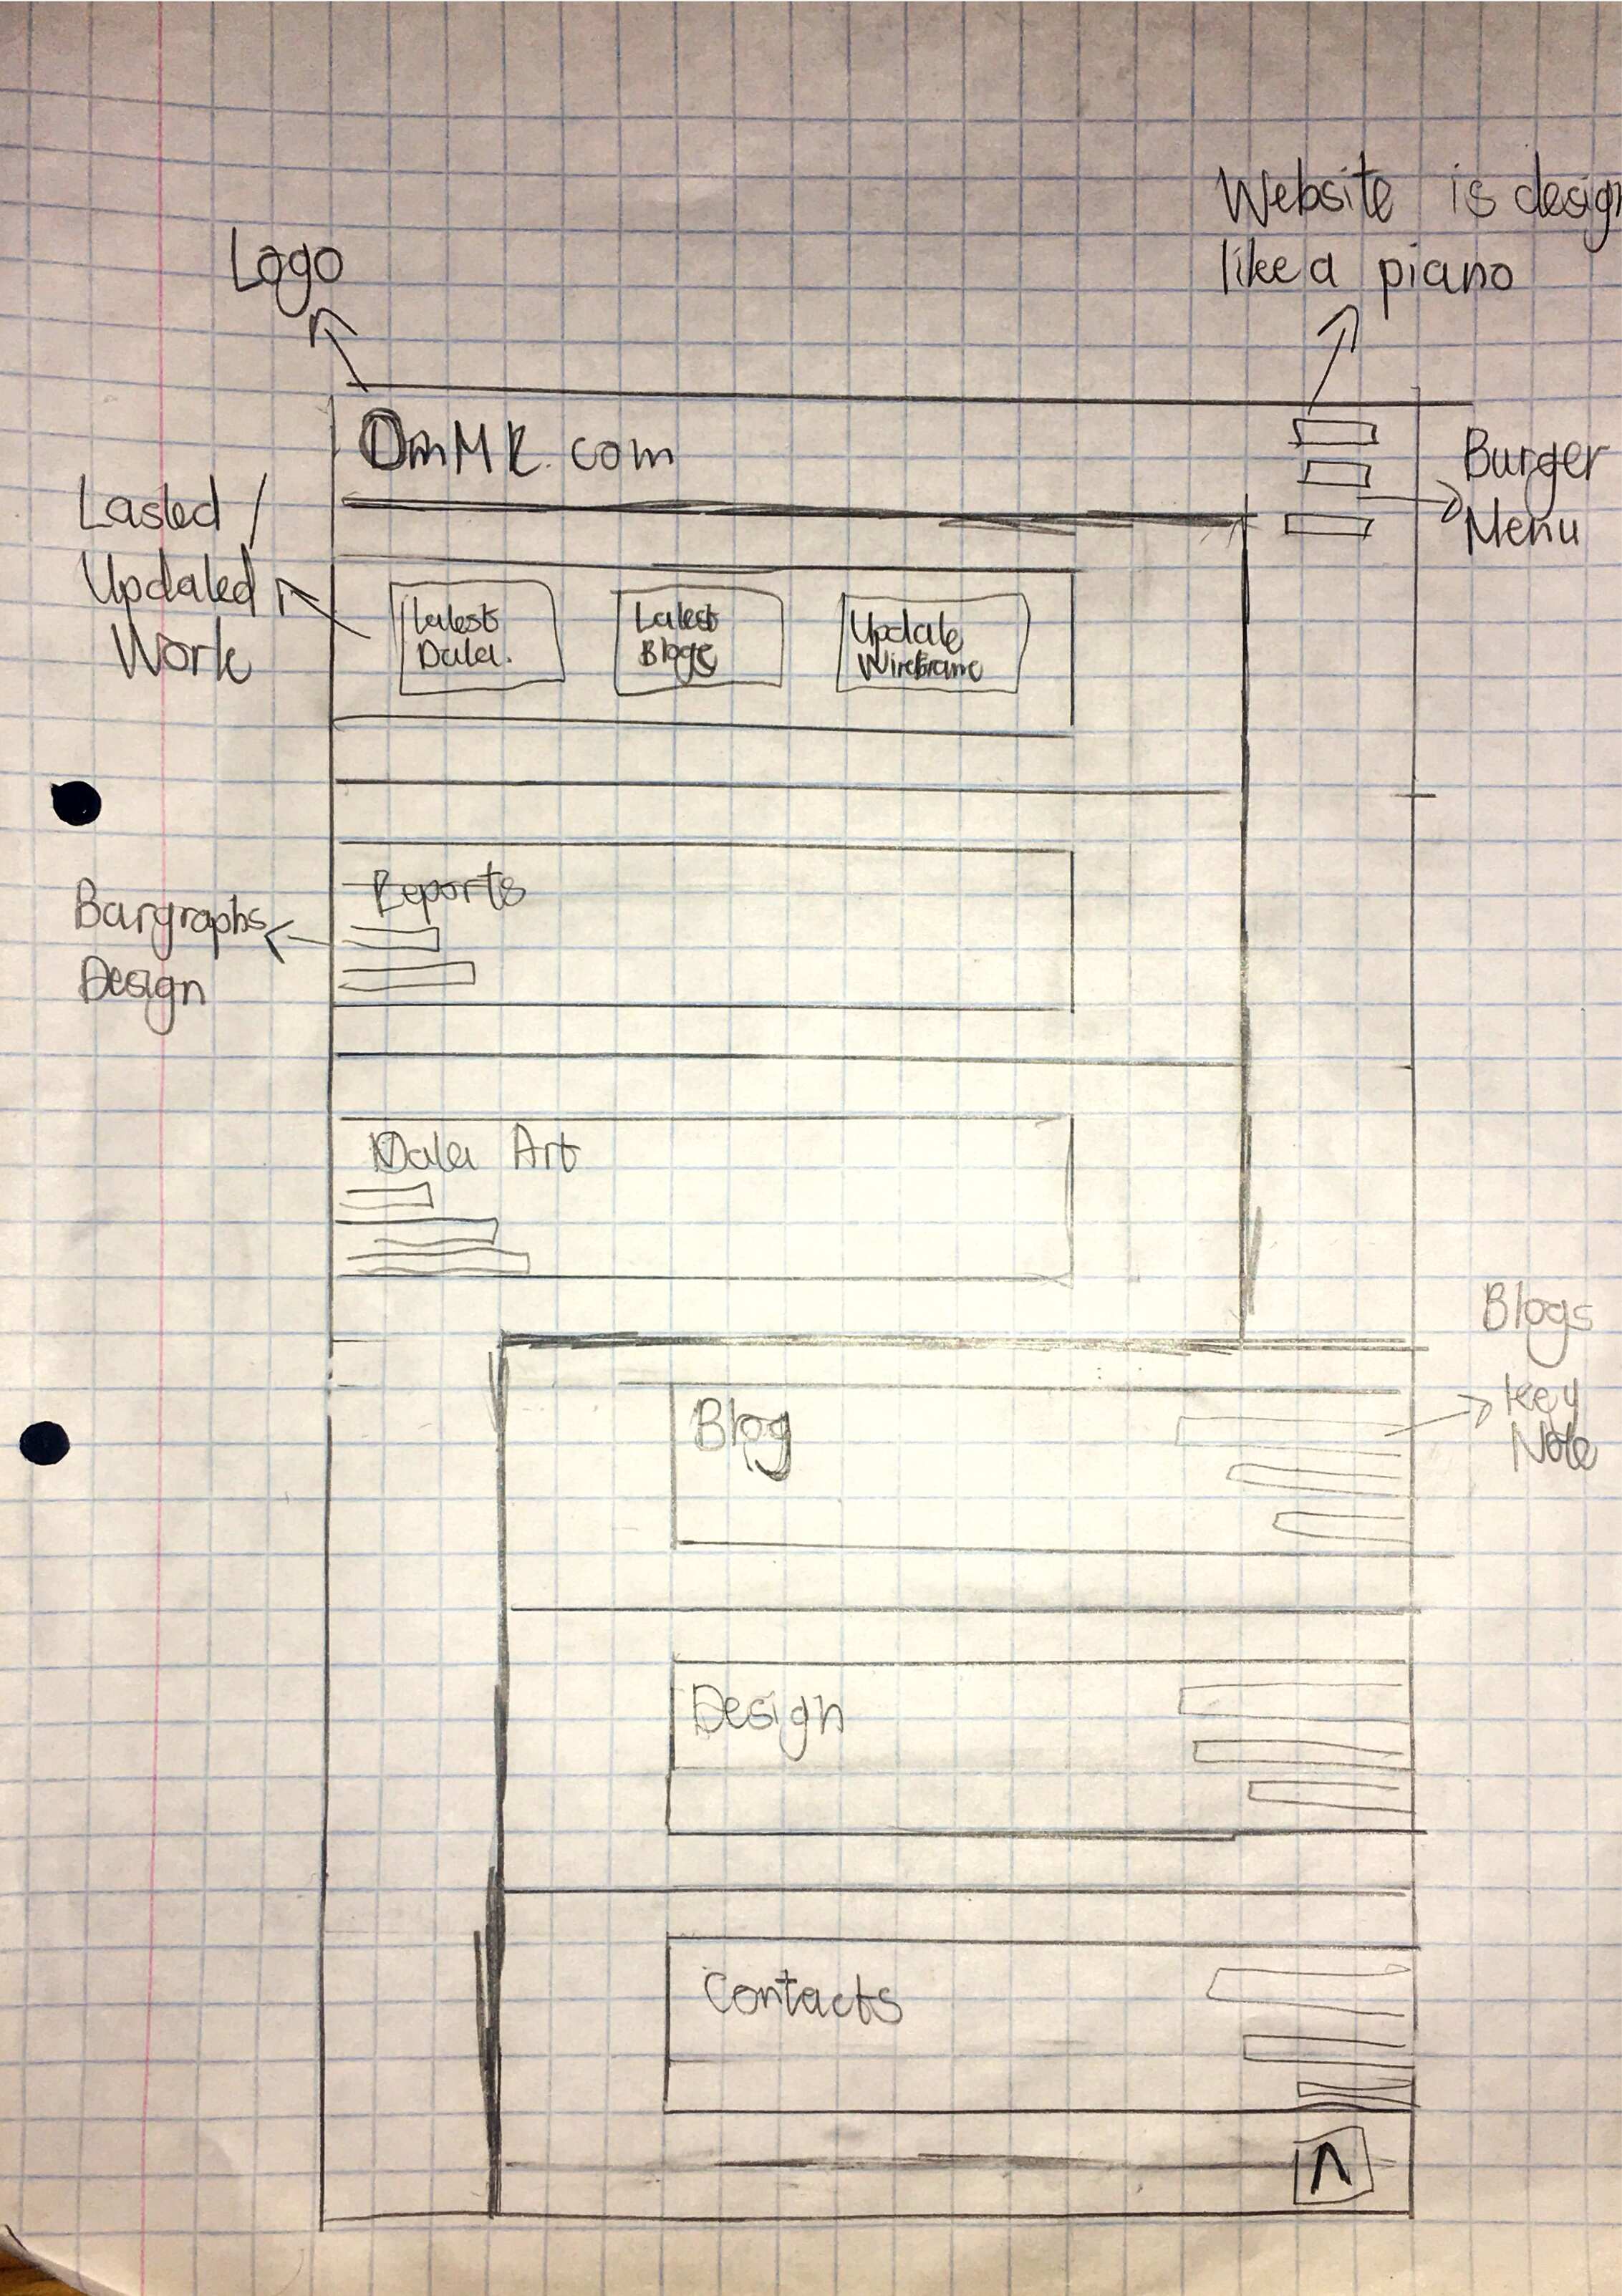 Website is design
like a piano
Logo
DmMK.com
Burger
Menu
Lasted /
Updated
Work
Latest
Data.
Latest
Blogs
Update
Wireframe
Reports
Bargraphs
Design
Data Art
Blogs
Key
Note
Blog
Design
Contacts